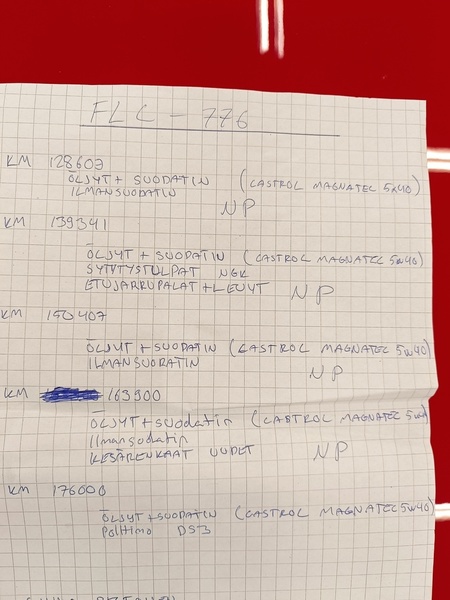 FLC - 776
KM 128603
ÖLJYT + SUODATIN (CASTROL MAGNATEC 5W40)
ILMANSUODATIN
NP
KM 139341
ÖLJYT + SUODATIN (CASTROL MAGNATEC 5W40)
SYTYTYSTULPAT NGK
ETUJARRUPALAT + LEVYT NP
KM 150407
ÖLJYT + SUODATIN (CASTROL MAGNATEC 5W40)
ILMANSUODATIN
NP
KM 163900
ÖLJYT + SUODATIN (CASTROL MAGNATEC
Ilmansodatin
KESÄRENKAAT UUDET NP
KM 176000
ÖLJYT + SUODATIN (CASTROL MAGNATEC 5W40)
Polttimo DS3